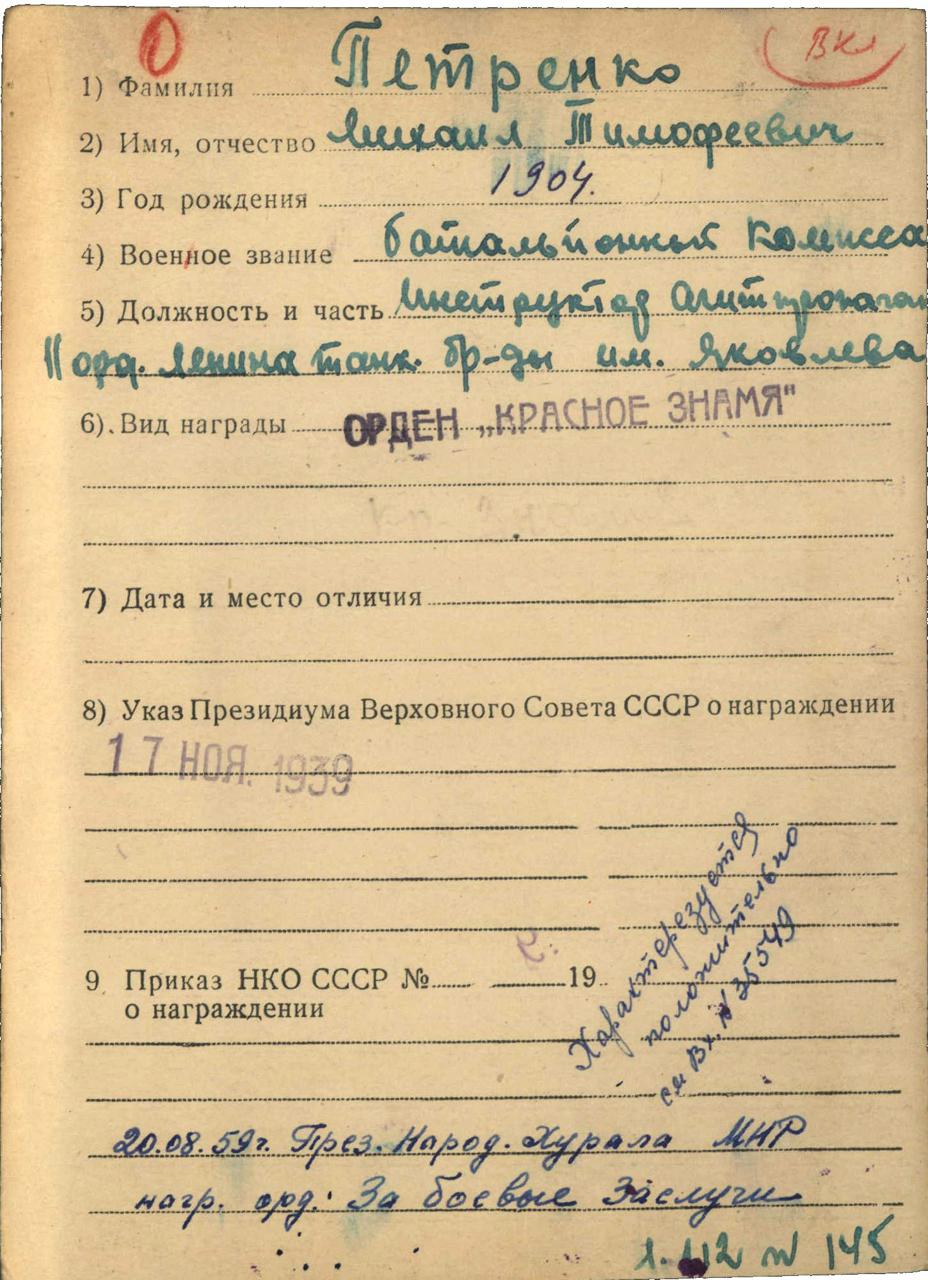 0
Вкл
1) Фамилия Петренко
2) Имя, отчество Михаил Тимофеевич
3) Год рождения 1904.
4) Военное звание батальионный Комисса
5) Должность и часть Инструктор Агитпропаган
11 орд. Ленина танк. бр-ды им. Яковлева
6). Вид награды ОРДЕН „КРАСНОЕ ЗНАМЯ"
7) Дата и место отличия
8) Указ Президиума Верховного Совета СССР о награждении
17 НОЯ. 1939
Характерезуется
положительно
см Вх. № 35549
9 Приказ НКО СССР № 19
о награждении
20.08.59г. През. Народ. Хурала МНР
нагр. орд: За боевые Заслуги
1.112 № 145